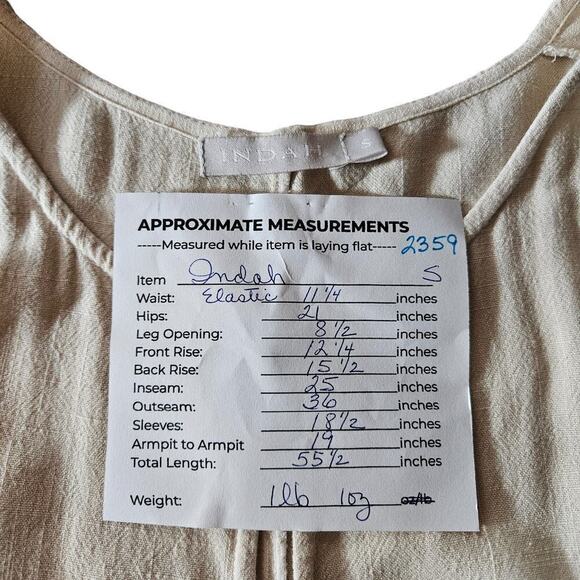 INDAH S
APPROXIMATE MEASUREMENTS
-----Measured while item is laying flat----- 2359
Item Indah S
Waist: Elastic 11 1/4 inches
Hips: 21 inches
Leg Opening: 8 1/2 inches
Front Rise: 12 1/4 inches
Back Rise: 15 1/2 inches
Inseam: 25 inches
Outseam: 36 inches
Sleeves: 18 1/2 inches
Armpit to Armpit 19 inches
Total Length: 55 1/2 inches
Weight: 1 lb 1 oz oz/lb